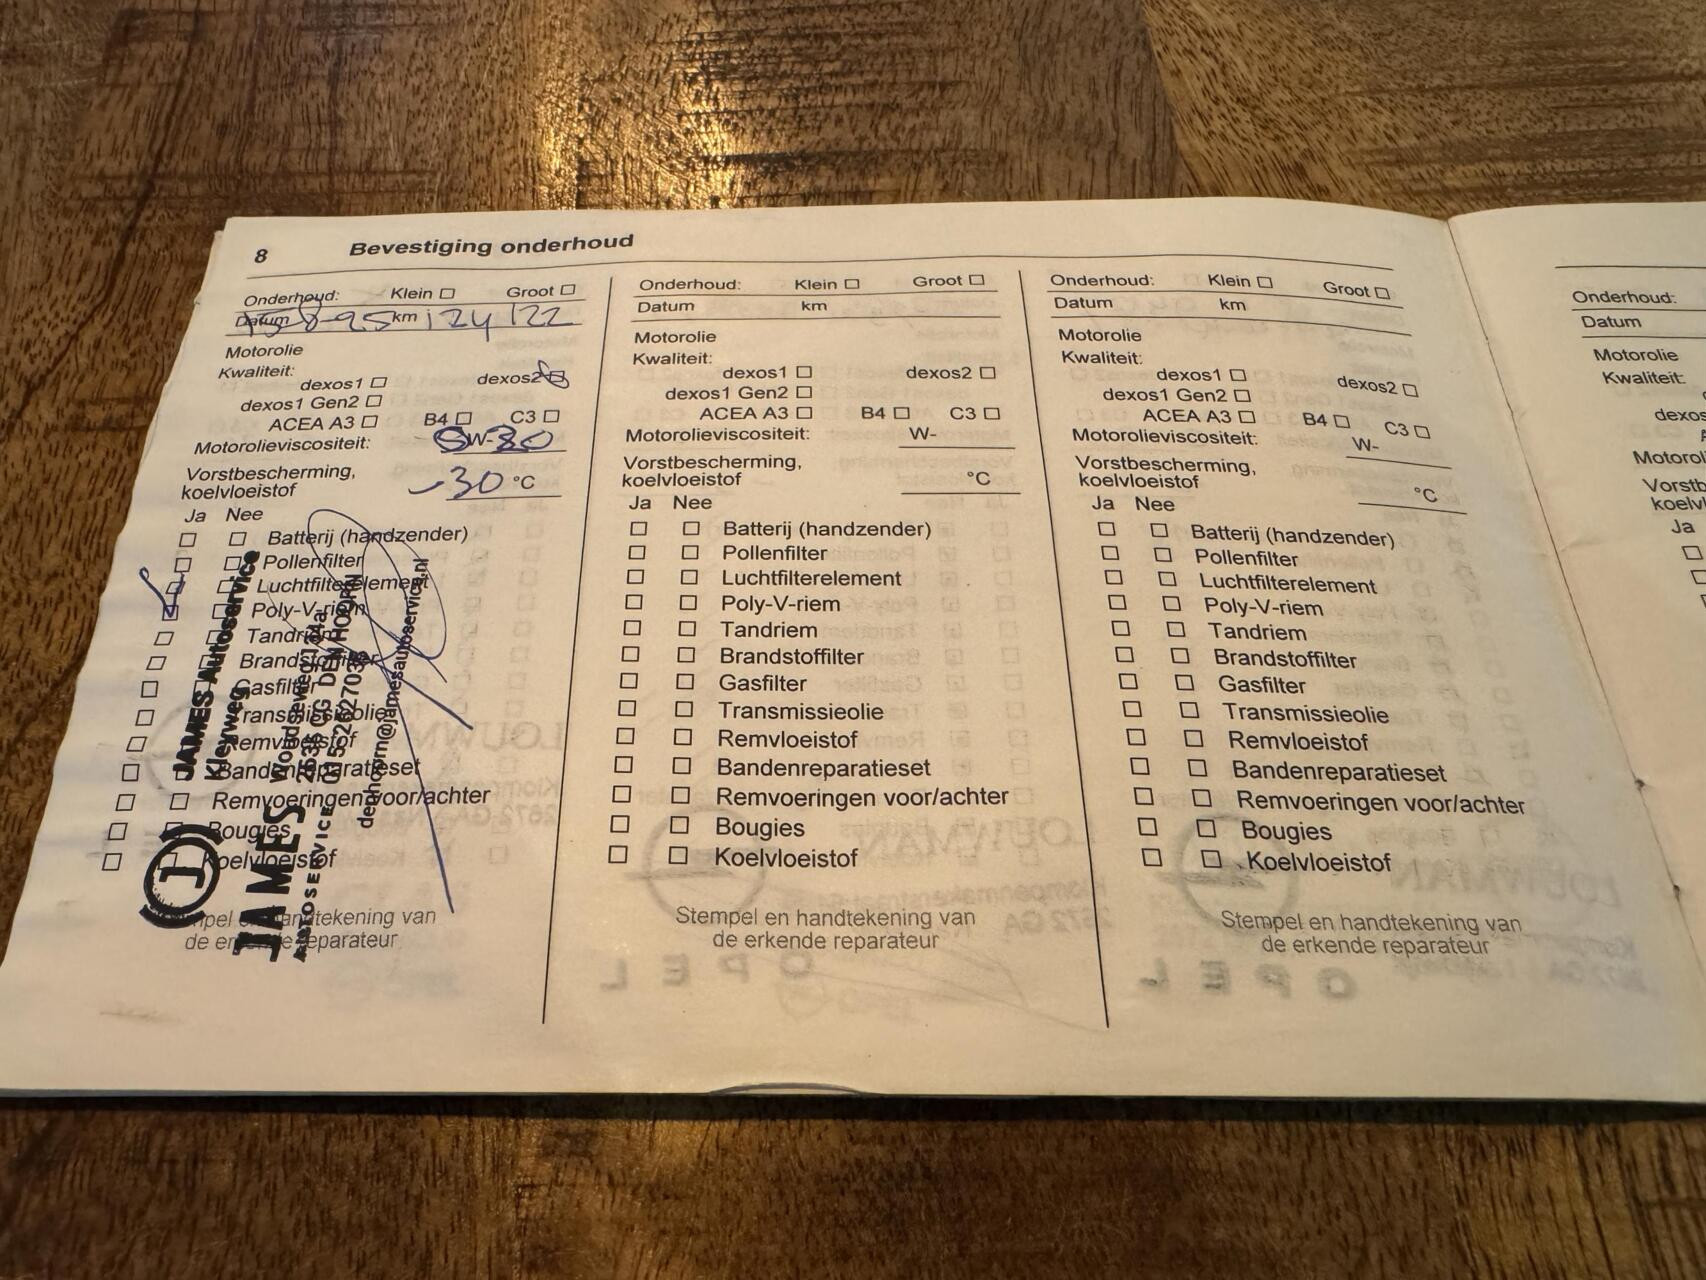 8 Bevestiging onderhoud
Onderhoud: Klein Groot
Datum 15-8-25 km 124 122
Motorolie
Kwaliteit:
dexos1 dexos2
dexos1 Gen2
ACEA A3 B4 C3
Motorolieviscositeit: W-
Vorstbescherming,
koelvloeistof -30 °C
Ja Nee
Batterij (handzender)
Pollenfilter
Luchtfilterelement
Poly-V-riem
Tandriem
Brandstoffilter
Gasfilter
Transmissieolie
Remvloeistof
Bandenreparatieset
Remvoeringen voor/achter
Bougies
Koelvloeistof
Stempel en handtekening van
de erkende reparateur
JAMES Autoservice
Kleyweg
JAMES
AUTOSERVICE
2635 CG DEN HOORN
denhoorn@jamesautoservice.nl
Onderhoud: Klein Groot
Datum km
Motorolie
Kwaliteit:
dexos1 dexos2
dexos1 Gen2
ACEA A3 B4 C3
Motorolieviscositeit: W-
Vorstbescherming,
koelvloeistof °C
Ja Nee
Batterij (handzender)
Pollenfilter
Luchtfilterelement
Poly-V-riem
Tandriem
Brandstoffilter
Gasfilter
Transmissieolie
Remvloeistof
Bandenreparatieset
Remvoeringen voor/achter
Bougies
Koelvloeistof
Stempel en handtekening van
de erkende reparateur
Onderhoud: Klein Groot
Datum km
Motorolie
Kwaliteit:
dexos1 dexos2
dexos1 Gen2
ACEA A3 B4 C3
Motorolieviscositeit: W-
Vorstbescherming,
koelvloeistof °C
Ja Nee
Batterij (handzender)
Pollenfilter
Luchtfilterelement
Poly-V-riem
Tandriem
Brandstoffilter
Gasfilter
Transmissieolie
Remvloeistof
Bandenreparatieset
Remvoeringen voor/achter
Bougies
Koelvloeistof
Stempel en handtekening van
de erkende reparateur
Onderhoud:
Datum
Motorolie
Kwaliteit:
Ja